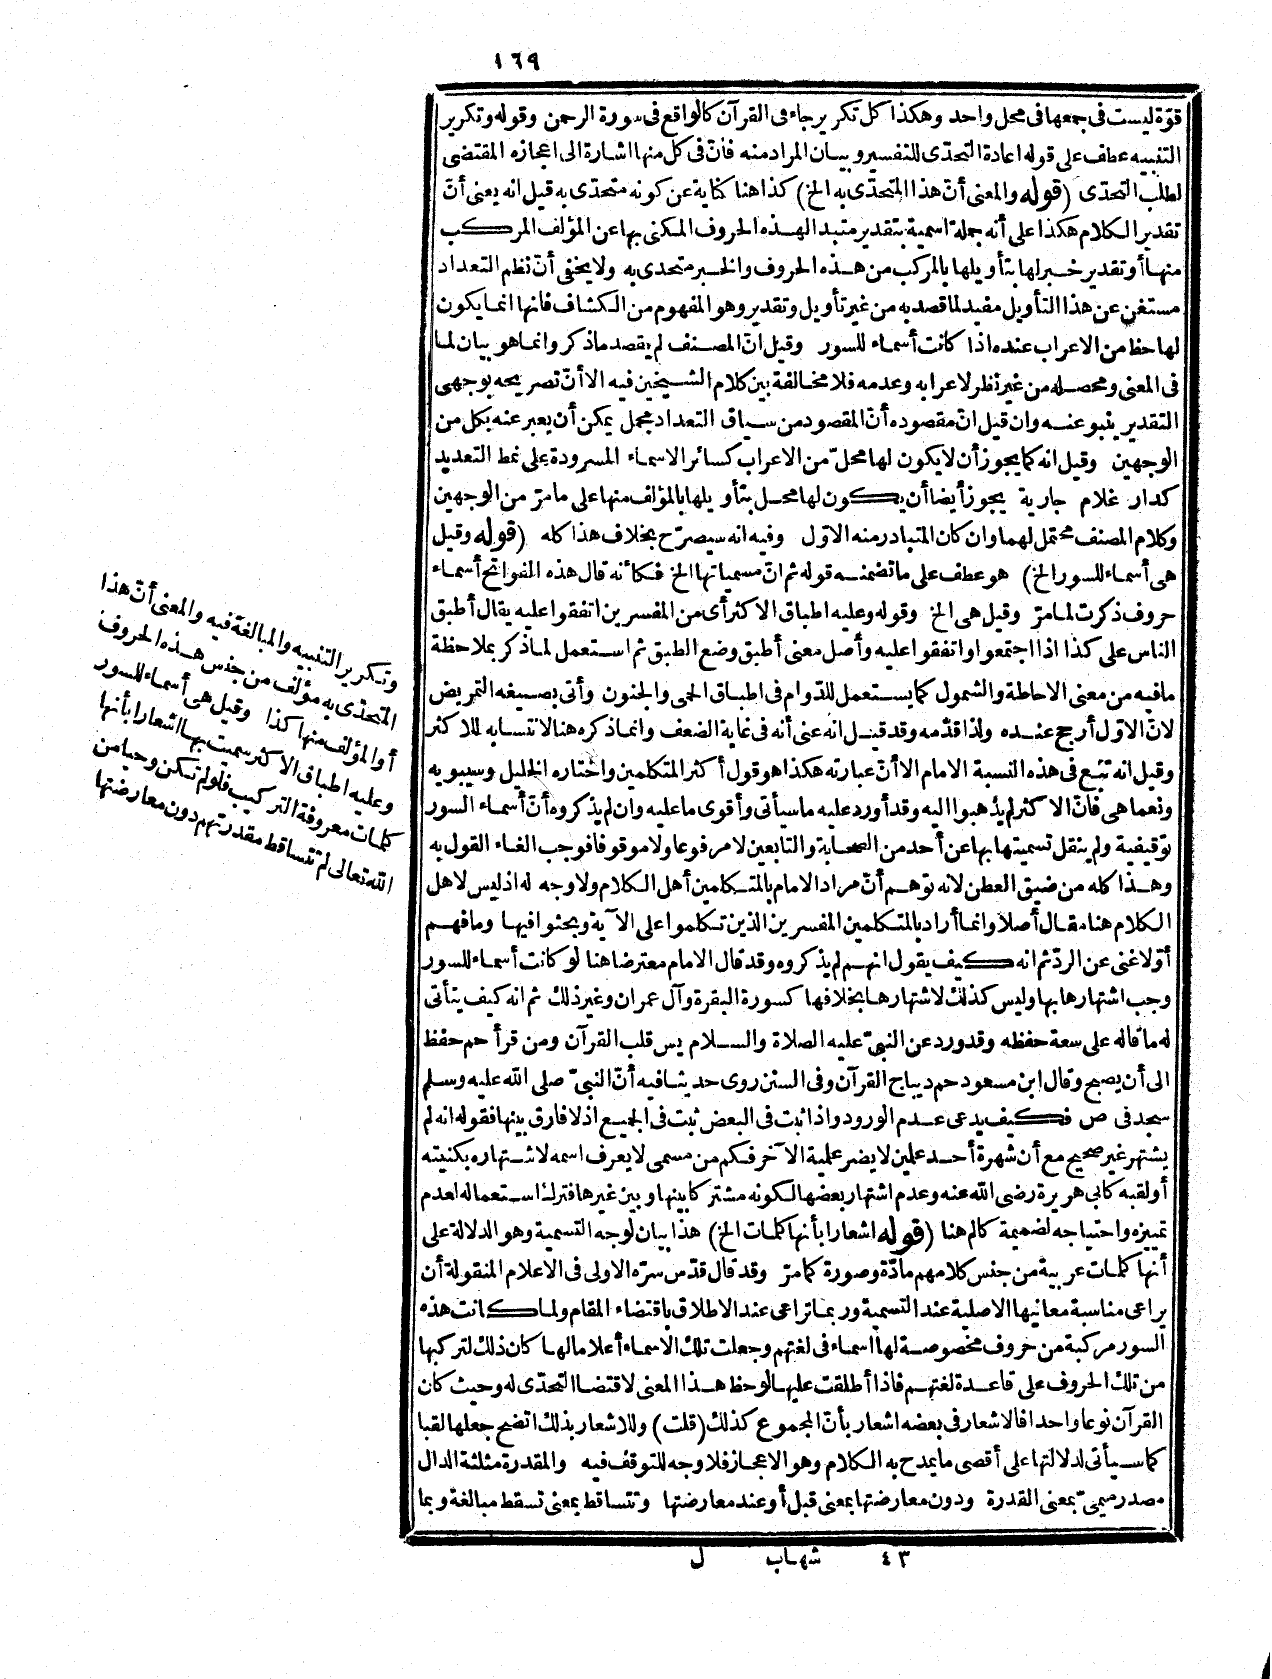 ١٦٩
قوّة ليست فى جمعها فى محل واحد وهكذا كل تكرير جاء فى القرآن كالواقع فى سورة الرحمن وقوله وتكرير
التنبيه عطف على قوله اعادة التحدّى للتفسير وبيان المراد منه فانّ فى كل منها اشارة الى اعجازه المقتضى
لطلب التحدّى (قوله والمعنى أنّ هذا المتحدّى به الخ) كذا هنا كناية عن كونه متحدّى به قيل انه يعنى أنّ
تقدير الكلام هكذا على أنه جملة اسمية بتقدير مبتدا لهذه الحروف المكنى بها عن المؤلف المركب
منها أو تقدير خبر لها بتأويلها بالمركب من هذه الحروف والخبر متحدى به ولا يخفى أنّ نظم التعداد
مستغن عن هذا التأويل مفيد لما قصد به من غير تأويل وتقدير وهو المفهوم من الكشاف فانها انما يكون
لها حظ من الاعراب عنده اذا كانت أسماء للسور وقيل انّ المصنف لم يقصد ما ذكر وانما هو بيان لما
فى المعنى ومحصله من غير نظر لاعرابه وعدمه فلا مخالفة بين كلام الشيخين فيه الا أنّ تصريحه بوجهى
التقدير ينبو عنه وان قيل انّ مقصوده أنّ المقصود من سياق التعداد مجمل يمكن أن يعبر عنه بكل من
الوجهين وقيل انه كما يجوز أن لا يكون لها محلّ من الاعراب كسائر الاسماء المسرودة على نمط التعديد
كدار غلام جارية يجوز أيضا أن يكون لها محل بتأويلها بالمؤلف منها على ما مرّ من الوجهين
وكلام المصنف محتمل لهما وان كان المتبادر منه الاوّل وفيه انه سيصرّح بخلاف هذا كله (قوله وقيل
هى أسماء للسور الخ) هو عطف على ما تضمنه قوله ثم انّ مسمياتها الخ فكأنه قال هذه الفواتح أسماء
حروف ذكرت لما مرّ وقيل هى الخ وقوله وعليه اطباق الاكثر أى من المفسرين اتفقوا عليه يقال أطبق
الناس على كذا اذا اجتمعوا واتفقوا عليه وأصل معنى أطبق وضع الطبق ثم استعمل لما ذكر بملاحظة
ما فيه من معنى الاحاطة والشمول كما يستعمل للدوام فى اطباق الحمى والجنون وأتى بصيغه التمريض
لانّ الاوّل أرجح عنده ولذا قدّمه وقد قيل انه عنى أنه فى غاية الضعف وانما ذكره هنا لانتسابه للاكثر
وقيل انه تبع فى هذه النسبة الامام الا أنّ عبارته هكذا هو قول أكثر المتكلمين واختاره الخليل وسيبويه
ونعما هى فانّ الاكثر لم يذهبوا اليه وقد أورد عليه ما سيأتى وأقوى ما عليه وان لم يذكروه أنّ أسماء السور
توقيفية ولم ينقل تسميتها بها عن أحد من الصحابة والتابعين لا مرفوعا ولا موقوفا فوجب الغاء القول به
وهذا كله من ضيق العطن لانه توهم أنّ مراد الامام بالمتكلمين أهل الكلام ولا وجه له اذ ليس لاهل
الكلام هنا مقال أصلا وانما أراد بالمتكلمين المفسرين الذين تكلموا على الآية وبحثوا فيها وما فهم
أوّلا غنى عن الردّ ثم انه كيف يقول انهم لم يذكروه وقد قال الامام معترضا هنا لو كانت أسماء للسور
وجب اشتهارها بها وليس كذلك لاشتهارها بخلافها كسورة البقرة وآل عمران وغير ذلك ثم انه كيف يتأتى
له ما قاله على سعة حفظه وقد ورد عن النبىّ عليه الصلاة والسلام يس قلب القرآن ومن قرأ حم حفظ
الى أن يصبح وقال ابن مسعود حم ديباج القرآن وفى السنن روى حديثا فيه أنّ النبىّ صلى الله عليه وسلم
سجد فى ص فكيف يدعى عدم الورود واذا ثبت فى البعض ثبت فى الجميع اذ لا فارق بينها فقوله انه لم
يشتهر غير صحيح مع أن شهرة أحد علمين لا يضر علمية الآخر فكم من مسمى لا يعرف اسمه لاشتهاره بكنيته
أو لقبه كابى هريرة رضى الله عنه وعدم اشتهار بعضها لكونه مشتركا بينها وبين غيرها فترك استعماله لعدم
تمييزه واحتياجه لضميمة كالم هنا (قوله اشعارا بأنها كلمات الخ) هذا بيان لوجه التسمية وهو الدلالة على
أنها كلمات عربية من جنس كلامهم مادّة وصورة كما مرّ وقد قال قدّس سرّه الاولى فى الاعلام المنقولة أن
يراعى مناسبة معانيها الاصلية عند التسمية وربما تراعى عند الاطلاق باقتضاء المقام ولما كانت هذه
السور مركبة من حروف مخصوصة لها اسماء فى لغتهم وجعلت تلك الاسماء أعلاما لها كان ذلك لتركبها
من تلك الحروف على قاعدة لغتهم فاذا أطلقت عليها لوحظ هذا المعنى لاقتضا التحدّى له وحيث كان
القرآن نوعا واحدا فالاشعار فى بعضه اشعار بأنّ المجموع كذلك (قلت) وللاشعار بذلك اتضح جعلها لقبا
كما سيأتى لدلالتها على أقصى ما يمدح به الكلام وهو الاعجاز فلا وجه للتوقف فيه والمقدرة مثلثة الدال
مصدر ميمىّ بمعنى القدرة ودون معارضتها بمعنى قبل أو عند معارضتها وتتساقط بمعنى تسقط مبالغة وبما
وتكرير التنبيه والمبالغة فيه والمعنى أنّ هذا
المتحدّى به مؤلف من جنس هذه الحروف
أو المؤلف منها كذا وقيل هى أسماء للسور
وعليه اطباق الاكثر سميت بها اشعارا بأنها
كلمات معروفة التركيب فلو لم تكن وحيا من
الله تعالى لم تتساقط مقدرتهم دون معارضتها
٤٣ شهاب ل